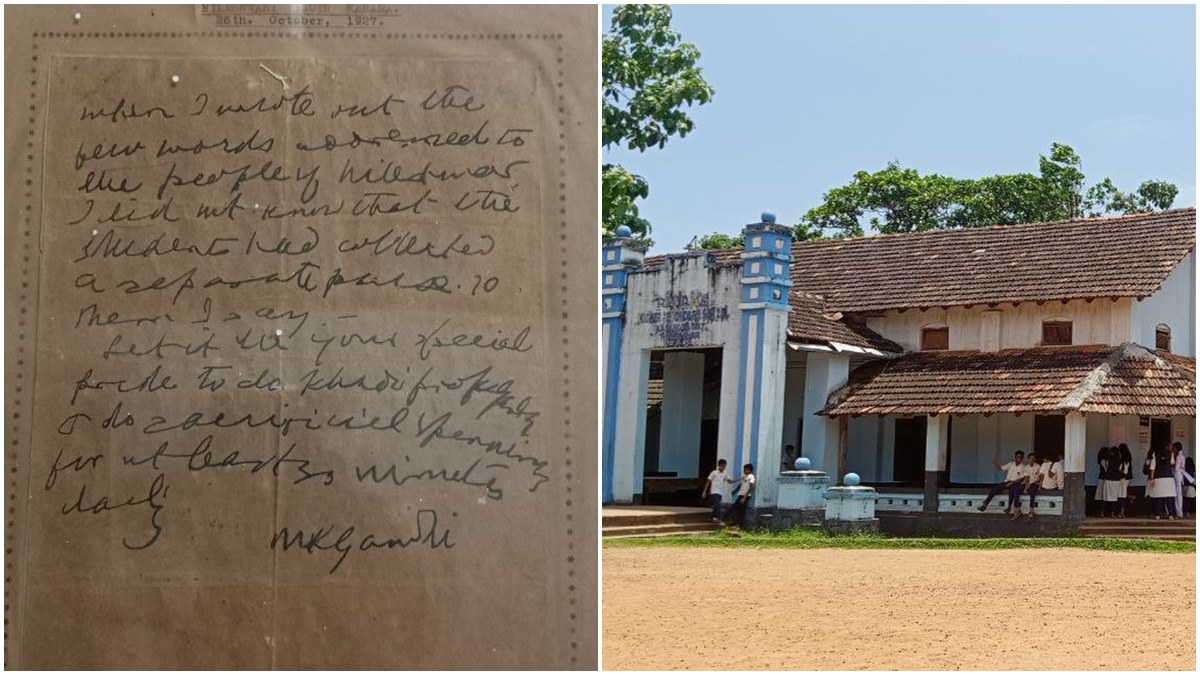 NILESHWAR, SOUTH KANARA.
26th. October, 1927.
when I wrote out the
few words addressed to
the people of Nileshwar
I did not know that the
students had collected
a separate purse. To
them I say —
Let it be your special
pride to do khadi
& do sacrificial spinning
for at least 30 minutes
daily
MKGandhi
RAJAH'S
HIGHER SECONDARY SCHOOL